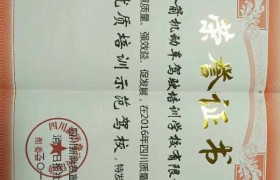 荣誉证书
机动车驾驶培训学校有限
质量、强效益、促发展,在2016年四川质量
优质培训示范驾校,特发